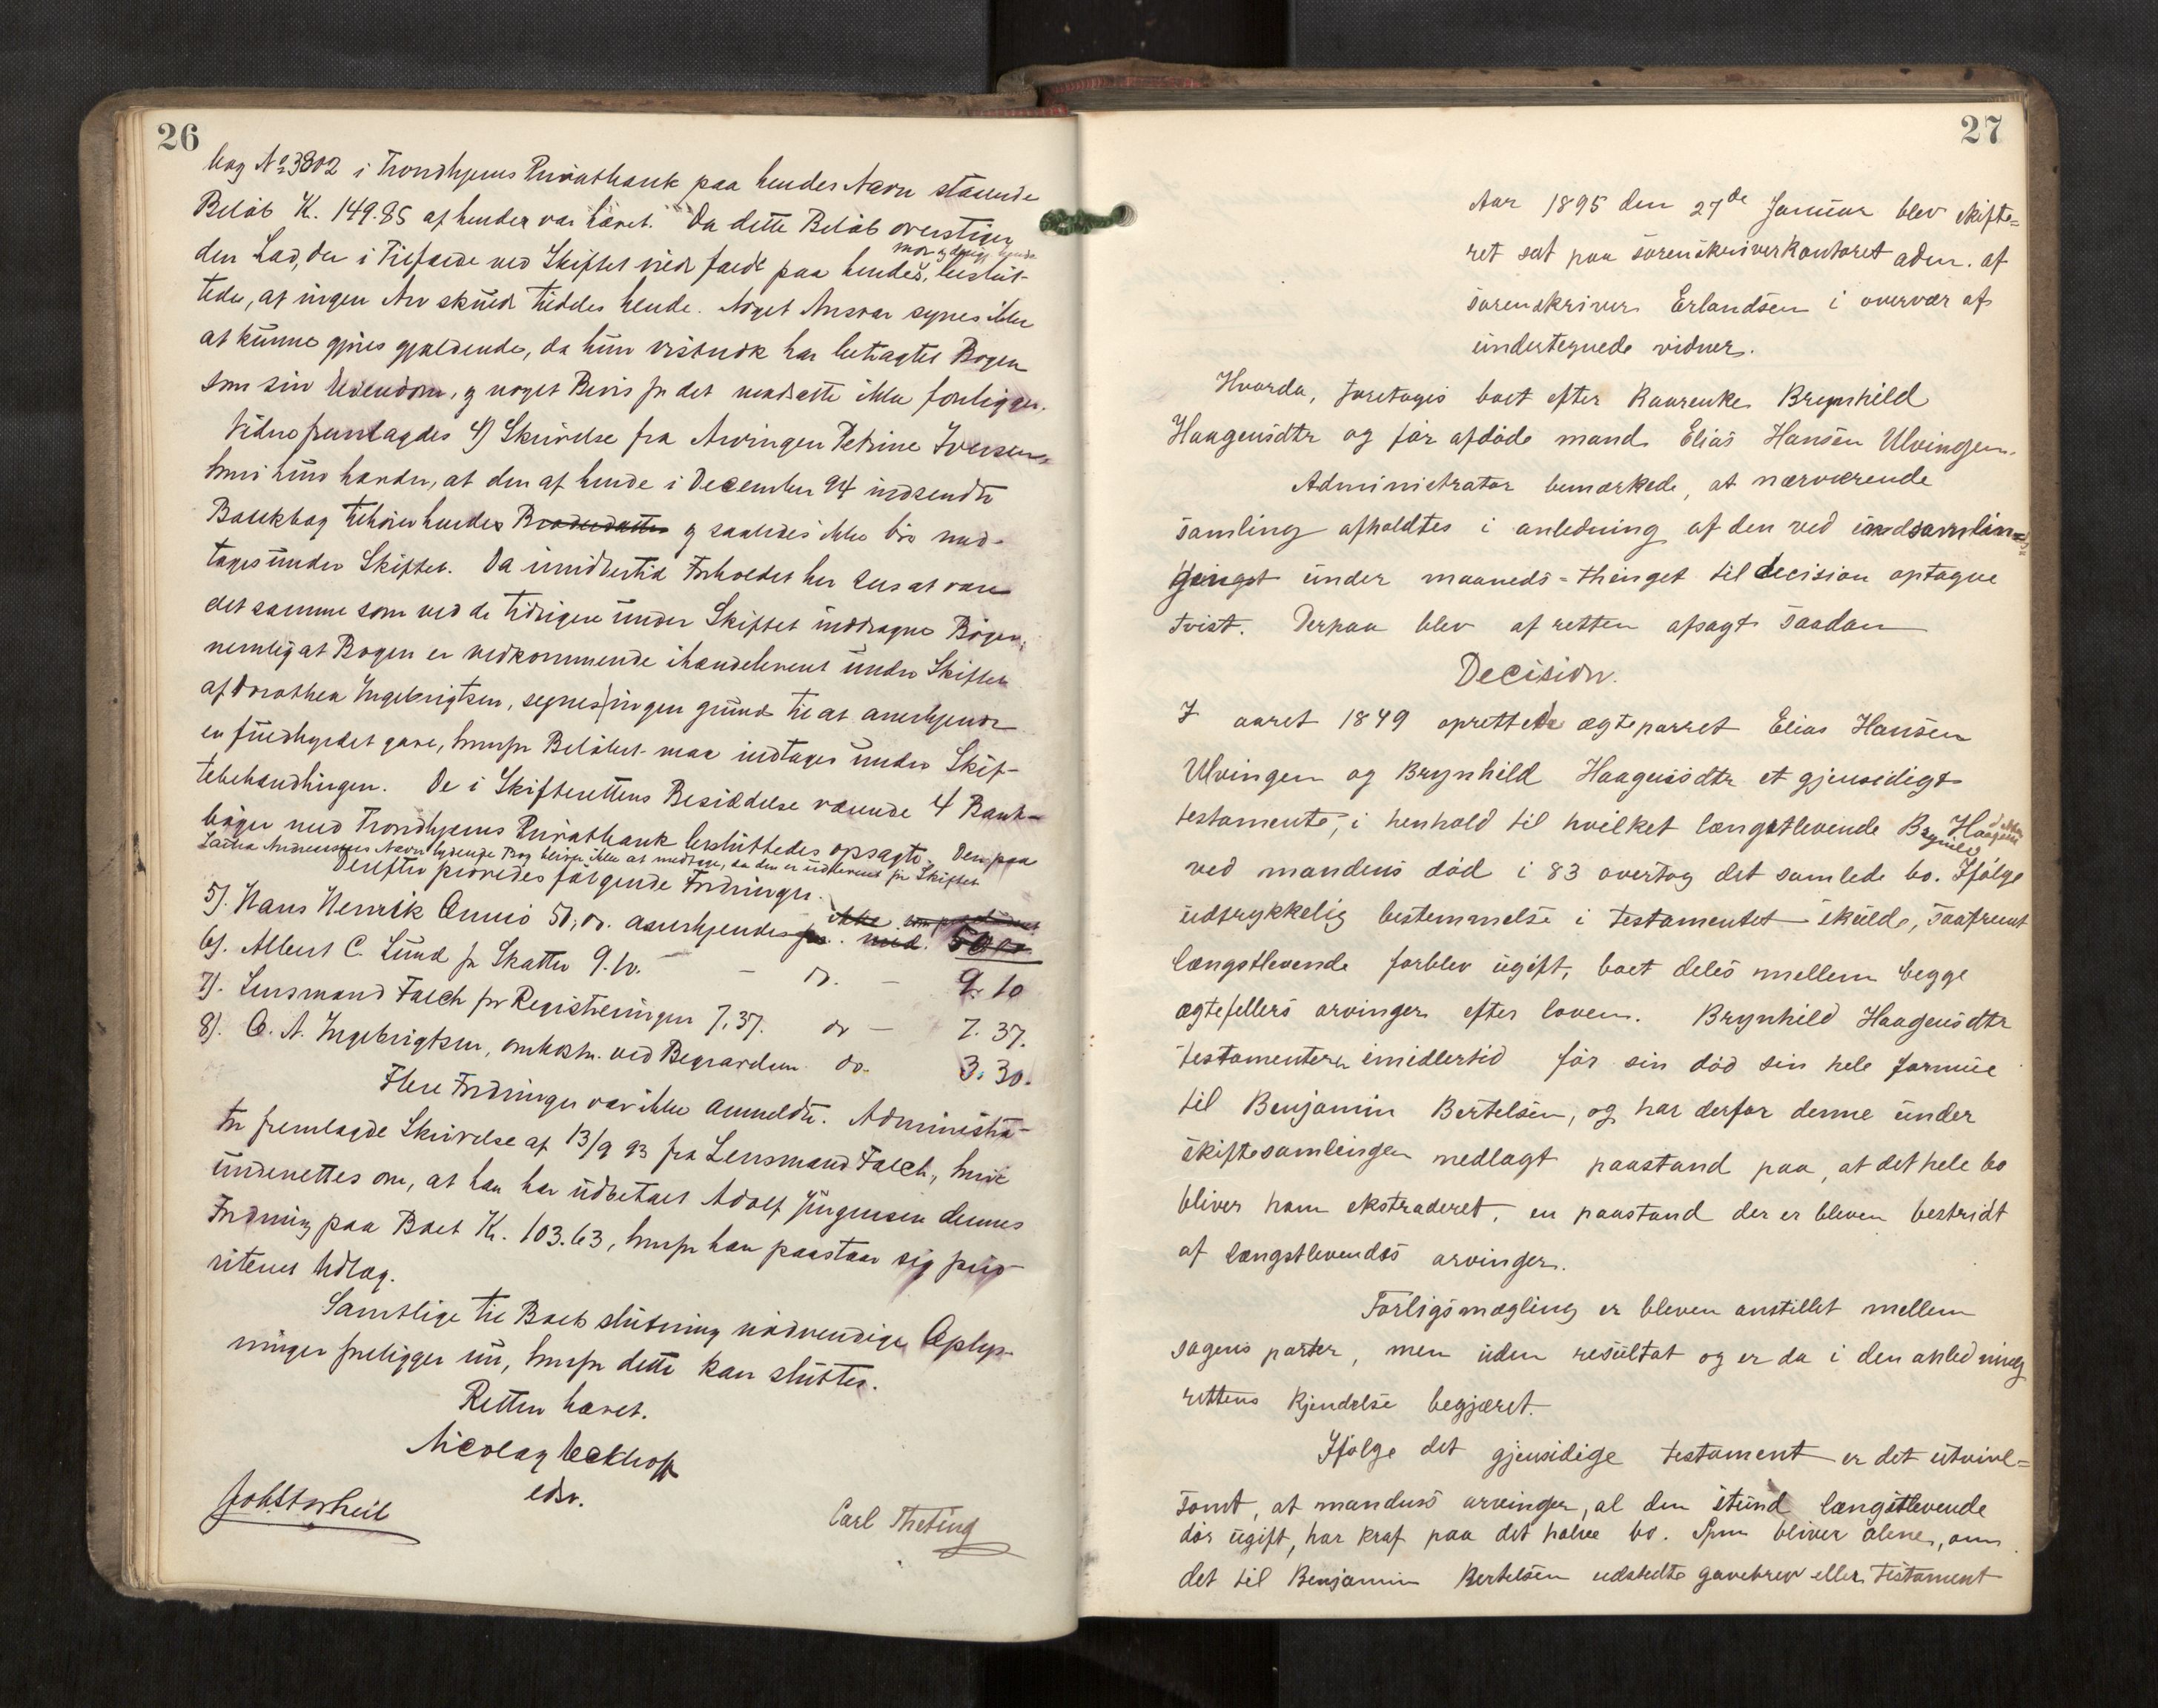 26
bog No 3802 i Trondhjems Privatbank paa hendes Navn staaende
Beløb K. 149.85 af hende var hævet. Da dette Beløb overstiger
den Lod, der i Tilfælde ved Skiftet vilde falde paa hende, beslut-
tedes, at ingen Arv skulde tilddeles hende. Noget Ansvar synes ikke
at kunne gjøres gjældende, da hun vistnok har betragtet Bogen
som sin Eiendom, og noget Bevis for det modsatte ikke foreligger.
Videre fremlagdes 4) Skrivelse fra Arvingen Petrine Iversen,
hvori hun hævder, at den af hende i December 94 indsendte
Bankbog tilhører hendes Broderdatter og saaledes ikke bør med-
tages under Skiftet. Da imidlertid Forholdet her sees at være
det samme som ved de tidligere under Skiftet inddragne Bøger,
nemlig at Bogen er vedkommende ihændeleveret under Skiftet
af Dorothea Ingebrigtsen, synes ingen grund til at anerkjende
en fuldbyrdet gave, hvorfor Beløbet maa indtages under Skif-
tebehandlingen. De i Skifterettens Besiddelse værende 4 Bank-
bøger med Trondhjems Privatbank besluttedes opsagte. Den paa
Navn lydende Bog bliver ikke at medtage, da den er udleveret før Skiftet
Derefter prøvedes følgende Fordringer.
5). Hans Henrik Onnio 50,00. anerkjendes ikke med 50.00
6). Albert C. Lund for Skatter 9.10. – do. – 9.10
7). Lensmand Falch for Registreringen 7,37. do – 7.37.
8). O. A. Ingebrigtsen, omkostn. ved Begravelsen do. 3.30.
Flere Fordringer var ikke anmeldte. Administra-
tor fremlagde Skrivelse af 13/9 93 fra Lensmand Falch, hvori
underrettes om, at han har udbetalt Adolf Jørgensen dennes
Fordring paa Boet K. 103.63, hvorfor han paastaar sig prio-
riteret Udlæg.
Samtlige til Boets slutning nødvendige Oplys-
ninger foreligger nu, hvorfor dette kan sluttes.
Retten hævet.
Nicolay Eckhoff
edsv.
Carl Theting
27
Aar 1895 den 27de Januar blev skifte=
ret sat paa sørenskriverkontoret adm. af
sørenskriver Erlandsen i overvær af
undertegnede vidner.
Hvorda, foretoges boet efter Kaarenke Brynhild
Haagensdtr og før afdøde mand Elias Hansen Ulvingen.
Administrator bemærkede, at nærværende
samling afholdtes i anledning af den ved
under maaneds=thinget til decision optagne
tvist. Derpaa blev af retten afsagt saadan
Decision.
I aaret 1849 oprettede ægteparret Elias Hansen
Ulvingen og Brynhild Haagensdtr et gjensidigt
testamente, i henhold til hvilket længstlevende Brynild Haagensdatter
ved mandens død i 83 overtog det samlede bo. Ifølge
udtrykkelig bestemmelse i testamentet skulde, saafremt
længstlevende forblev ugift, boet deles mellem begge
ægtefellers arvinger efter loven. Brynhild Haagensdtr
testamenterer imidlertid før sin død sin hele formue
til Benjamin Bertelsen, og har derfor denne under
skiftesamlingen nedlagt paastand paa, at det hele bo
bliver ham ekstraderet, en paastand der er bleven bestridt
af længstlevendes arvinger.
Forligsmægling er bleven anstillet mellem
sagens parter, men uden resultat og er da i den anledning
rettens kjendelse begjæret.
Ifølge det gjensidige testament er det utvivl=
somt, at mandens arvinger, al den stund længstlevende
dør ugift, har kraf paa det halve bo. Spm bliver alene, om
det til Benjamin Bertelsen udstedte gavebrev eller testament